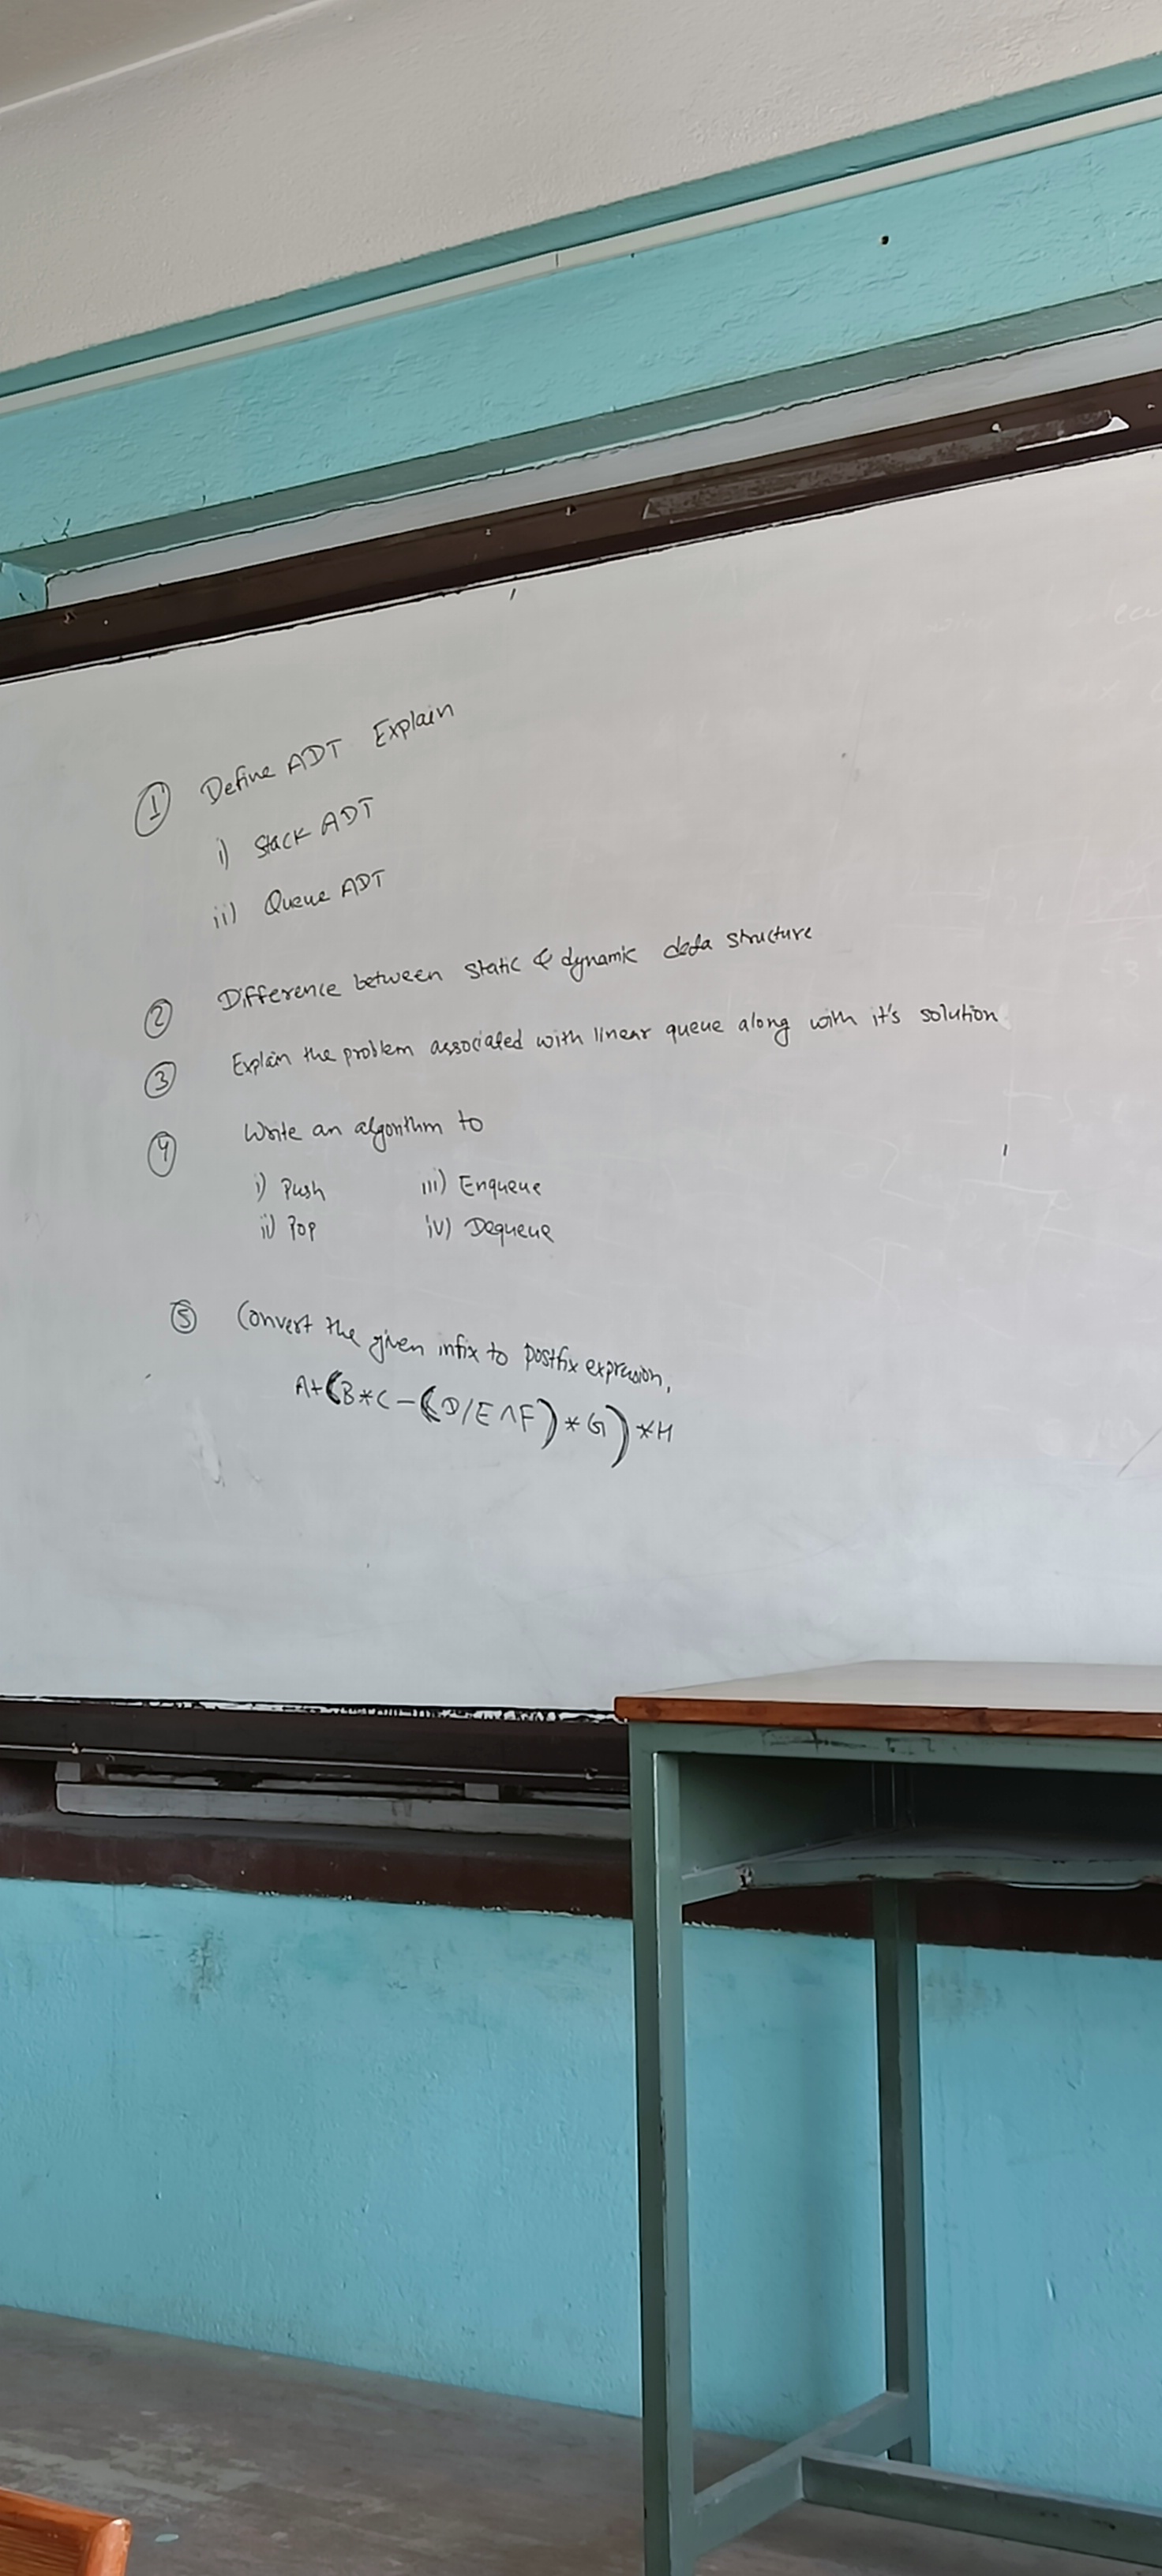 ① Define ADT Explain
i) Stack ADT
ii) Queue ADT
② Difference between static & dynamic data structure
③ Explain the problem associated with linear queue along with it's solution
④ Write an algorithm to
i) Push iii) Enqueue
ii) Pop iv) Dequeue
⑤ Convert the given infix to postfix expression,
A+(B*C-(D/E^F)*G)*H